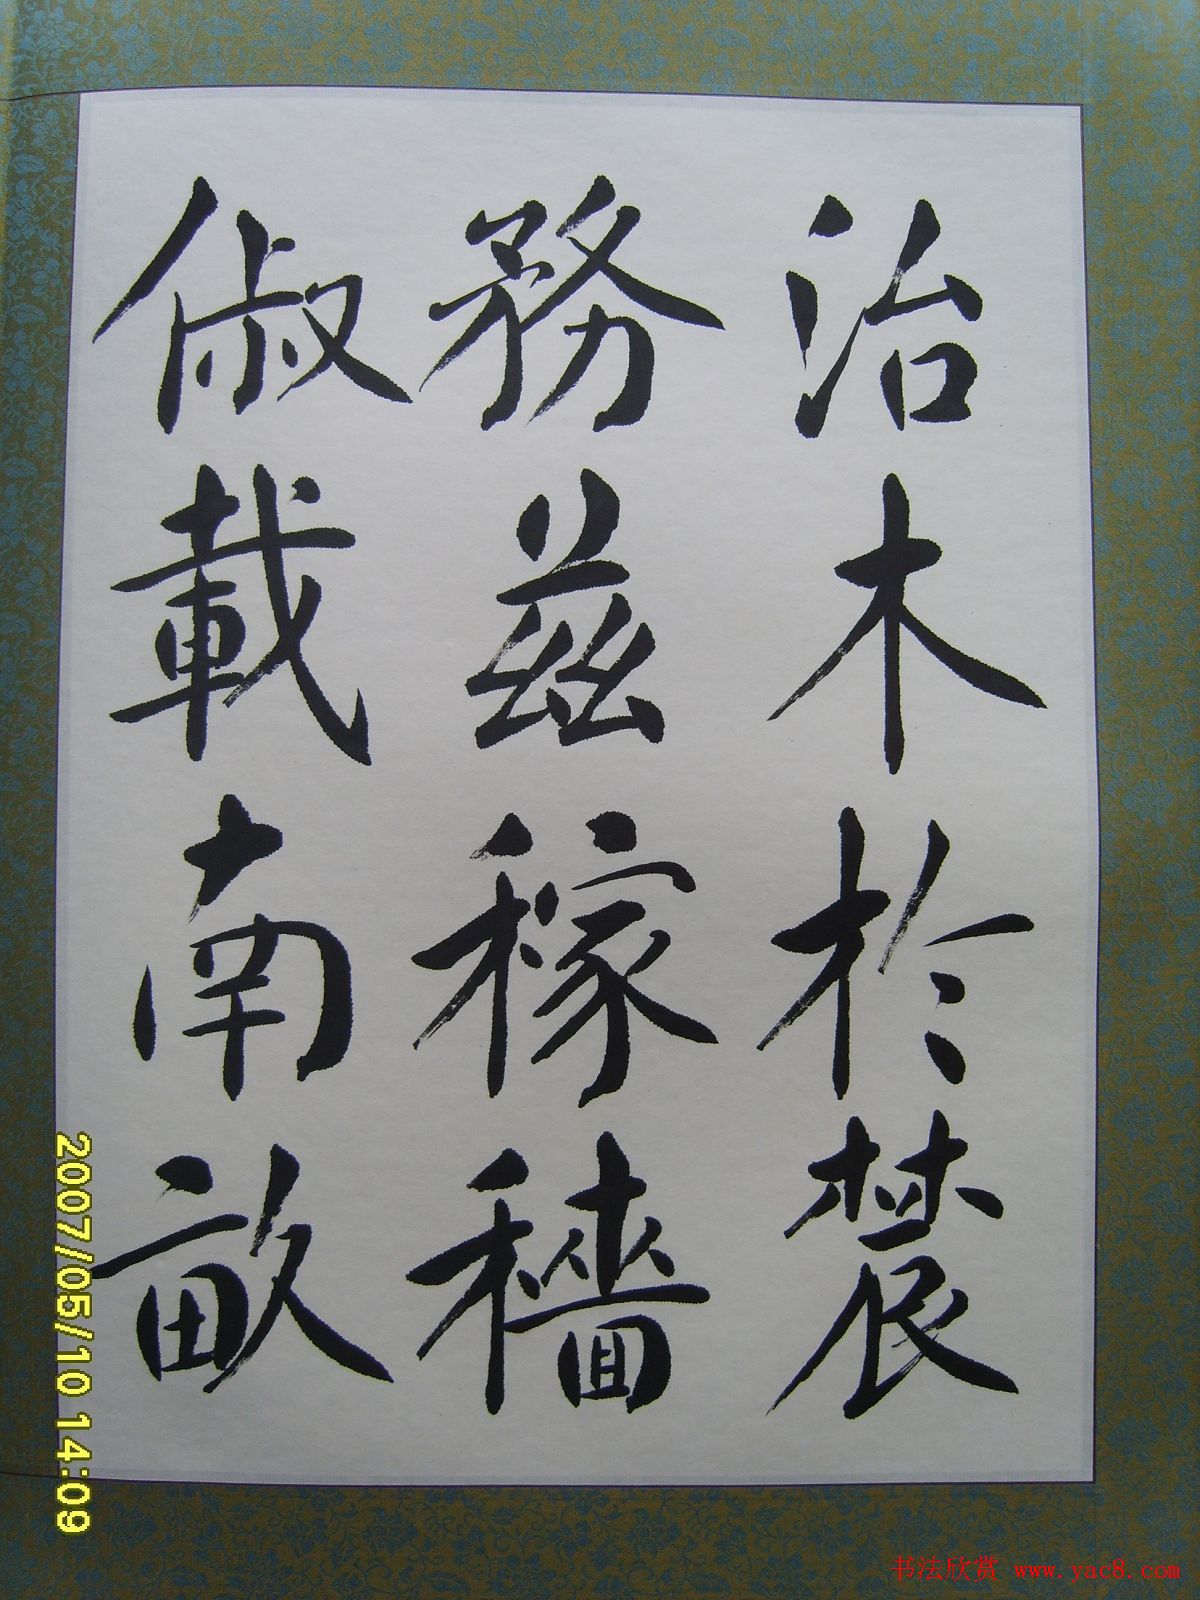 治木於農
務茲稼穡
俶載南畝
2007/05/10 14:09
书法欣赏 www.yac8.com